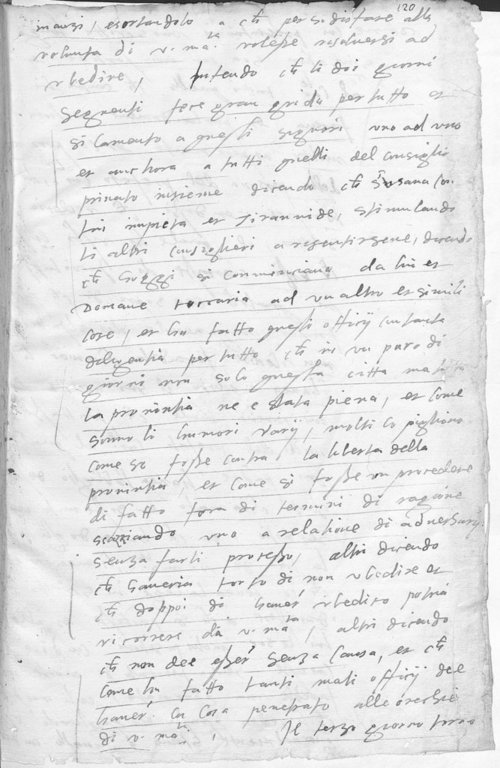 120
inanzi, esortandolo a ch per sodisfare alla
volunta di v. ma.ta volesse resolversi ad
ubedire, Intendo ch li doi giorni
seguenti fece gran grida per tutto et
si lamento a questi signori uno ad uno
et anchora a tutti quelli del consiglio
privato insieme dicendo ch s'usava con
lui impieta et tirannide, stimulando
li altri consiglieri a risentirsene, dicendo
ch hoggi si comminciava da lui et
Domane toccaria ad un altro et simili
cose, et ha fatto questi officij con tanta
deligentia per tutto ch in un paro di
giorni non solo questa citta ma tutta
la provintia ne e stata piena, et come
sonno li humori varij, molti la pigliano
come se fosse contra la liberta della
provintia, et come si fosse un procedere
di fatto fora di termini di ragione
scacciando uno a relatione di adversarij
senza farli processo, altri dicendo
ch haveria torto di non ubedire et
ch doppoi di haver ubedito potria
ricorrere da v. ma.ta, altri dicendo
ch non dee esser senza causa, et ch
come ha fatto tanti mali officij dee
haver la cosa penetrato alle orechie
di v. ma.ta, Il terzo giorno torno